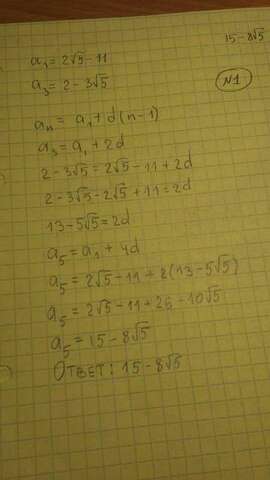 15 - 8√5
a₁ = 2√5 - 11
a₃ = 2 - 3√5
№1
aₙ = a₁ + d(n-1)
a₃ = a₁ + 2d
2 - 3√5 = 2√5 - 11 + 2d
2 - 3√5 - 2√5 + 11 = 2d
13 - 5√5 = 2d
a₅ = a₁ + 4d
a₅ = 2√5 - 11 + 2(13 - 5√5)
a₅ = 2√5 - 11 + 26 - 10√5
a₅ = 15 - 8√5
Ответ: 15 - 8√5